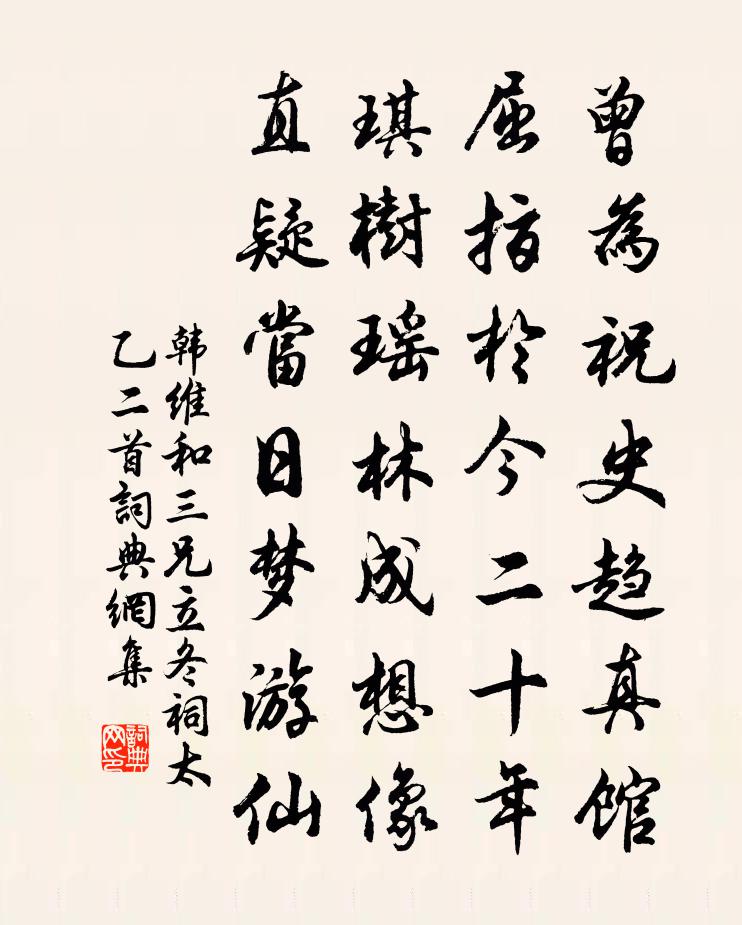 曾為祝史趋真馆
屈指於今二十年
琪樹瑶林成想像
直疑當日梦游仙
韩维和三兄立冬祠太
乙二首詞典網集
詞典网印